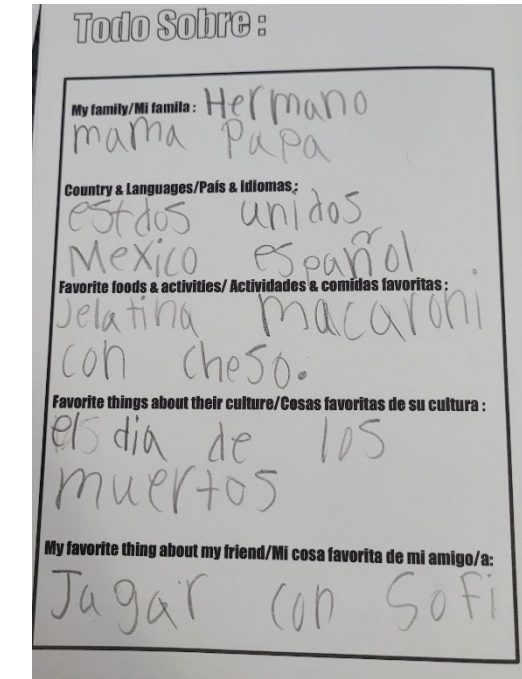 Todo Sobre :
My family/Mi famila : Hermano
mama Papa
Country & Languages/País & idiomas :
estdos unidos
Mexico español
Favorite foods & activities/ Actividades & comidas favoritas :
Jelatina macaroni
con cheso.
Favorite things about their culture/Cosas favoritas de su cultura :
el dia de los
muertos
My favorite thing about my friend/Mi cosa favorita de mi amigo/a:
Jugar con Sofi